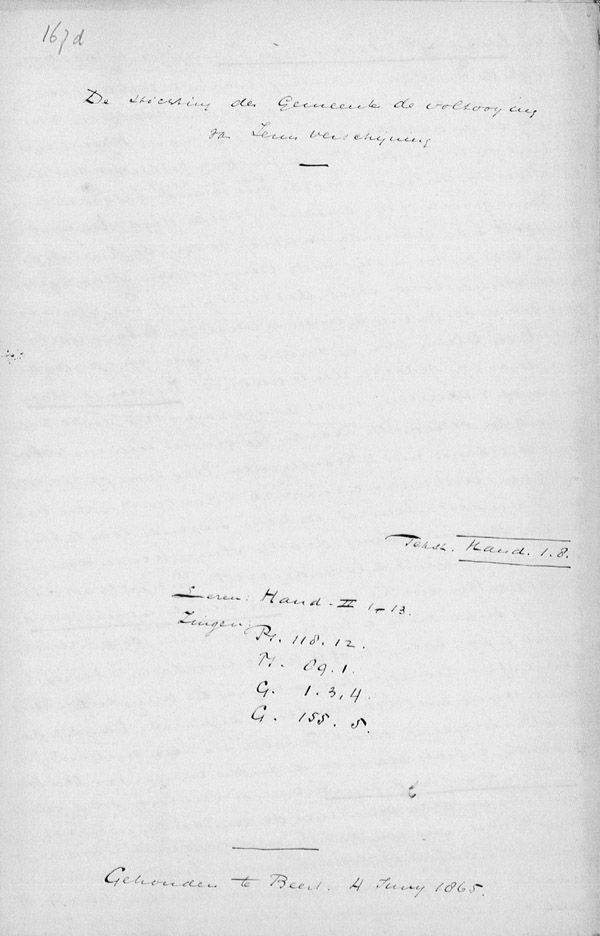 167d
De stichting der Gemeente de voltooying
van Jezus verschijning
Tekst. Hand. 1.8.
Lezen: Hand. II 1-13.
Zingen:
Ps. 118. 12.
Ps. 89. 1.
G. 1. 3, 4.
G. 155. 5.
Gehouden te Beest. 4 Juny 1865.